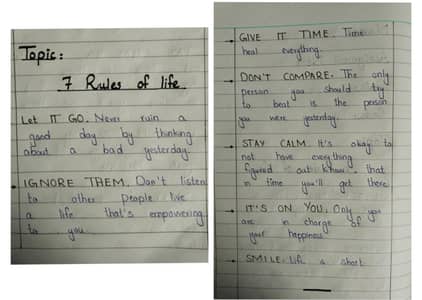 Topic:
7 Rules of life
Let IT GO. Never ruin a
good day by thinking
about a bad yesterday.
→ IGNORE THEM. Don't listen
to other people live
a life that's empowering
to you.
→ GIVE IT TIME. Time
heal everything.
→ DON'T COMPARE. The only
person you should try
to beat is the person
you were yesterday.
→ STAY CALM. It's okay to
not have everything
figured out know that
in time you'll get there.
→ IT'S ON YOU. Only you
are in charge of
your happiness.
→ SMILE. Life is short